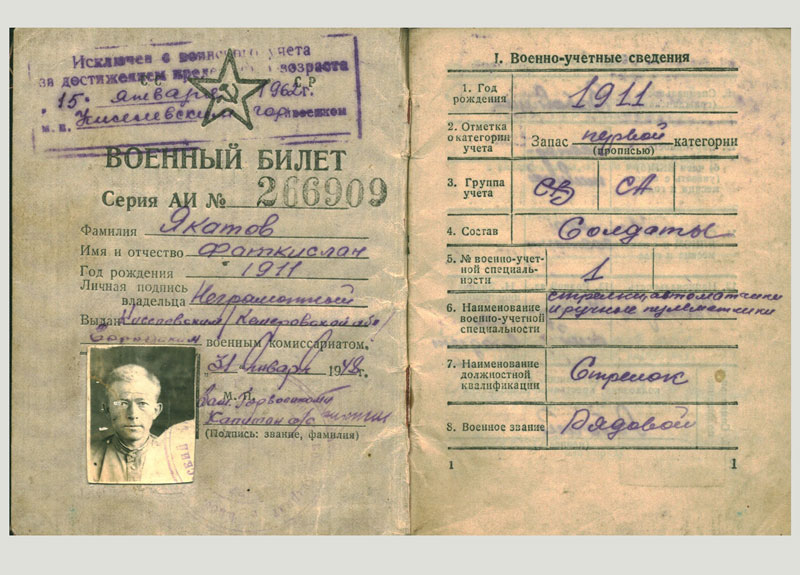 Исключен с воинского учета
за достижением предельного возраста
"15" января 1962г.
м. п. Киселевский горвоенком
С С С Р
ВОЕННЫЙ БИЛЕТ
Серия АИ № 266909
Фамилия Якатов
Имя и отчество Фаткислан
Год рождения 1911
Личная подпись
владельца Неграмотный
Выдан Киселевским Кемеровской обл
Городским военным комиссариатом.
"31" января 1948г.
М. П.
Зам. Горвоенкома
Капитан а/с
(Подпись: звание, фамилия)
I. Военно-учетные сведения
1. Год
рождения 1911
2. Отметка
о категории
учета Запас первой категории
(прописью)
3. Группа
учета СВ СА
4. Состав Солдаты
5. № военно-учет-
ной специаль-
ности 1
6. Наименование
военно-учетной
специальности стрелки, автоматчики
и ручные пулеметчики
7. Наименование
должностной
квалификации Стрелок
8. Военное звание Рядовой
1 1